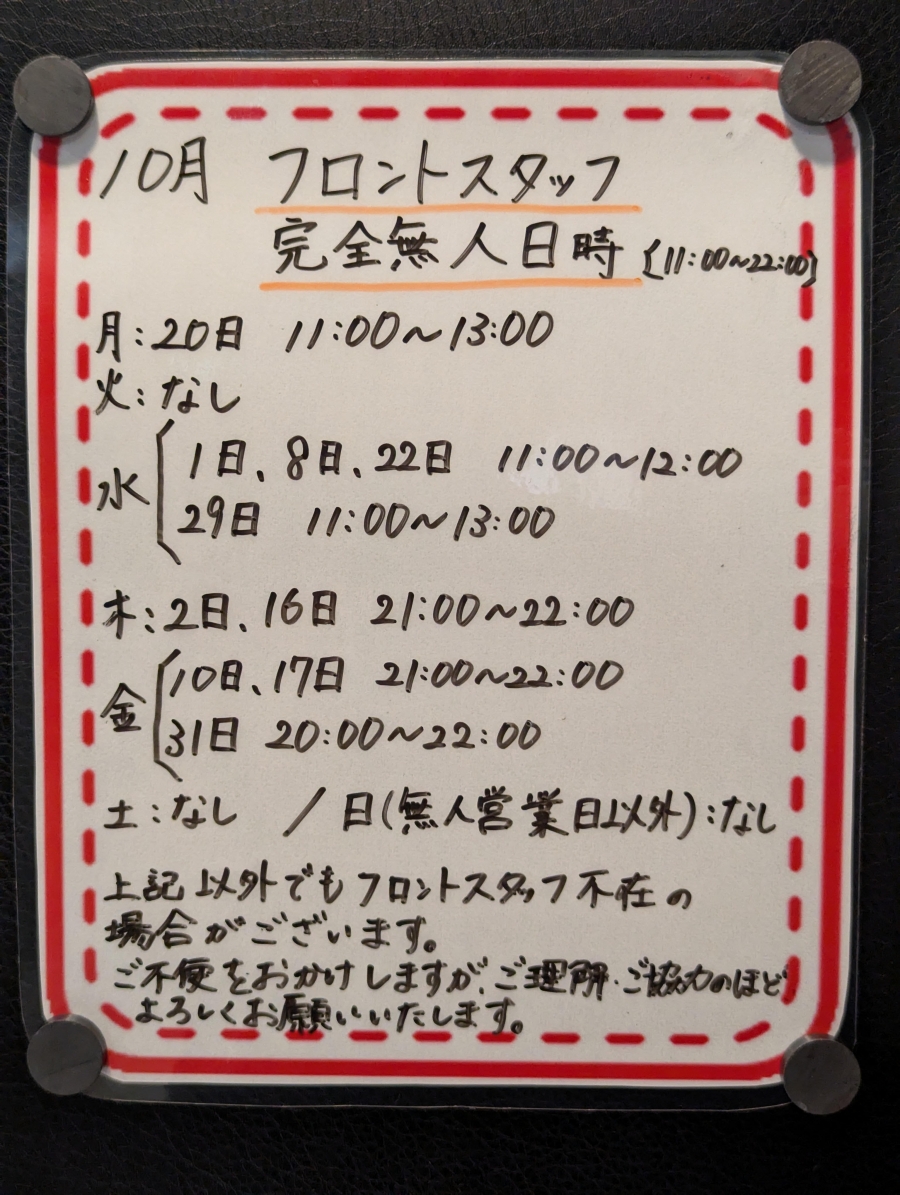 10月 フロントスタッフ
完全無人日時 {11:00~22:00}
月:20日 11:00~13:00
火:なし
水 1日、8日、22日 11:00~12:00
29日 11:00~13:00
木:2日、16日 21:00~22:00
金 10日、17日 21:00~22:00
31日 20:00~22:00
土:なし / 日(無人営業日以外):なし
上記以外でもフロントスタッフ不在の
場合がございます。
ご不便をおかけしますが、ご理解・ご協力のほど
よろしくお願いいたします。